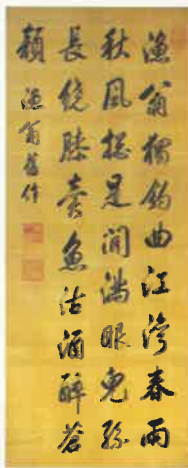 漁翁獨釣曲江灣春雨
秋風揔是閒滿眼兒孫
長繞膝賣魚沽酒醉蒼
顏
漁翁舊作